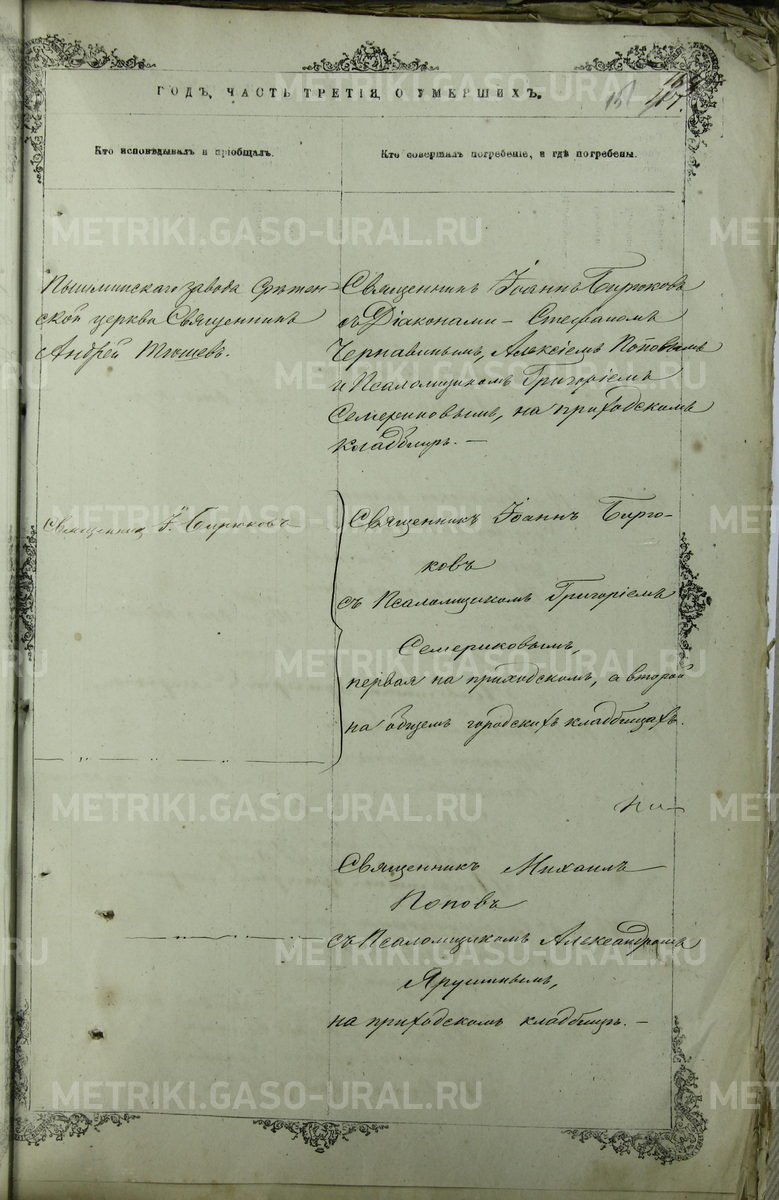 ГОДЪ, ЧАСТЬ ТРЕТІЯ, О УМЕРШИХЪ.
Кто исповѣдывалъ и пріобщалъ.
Кто совершалъ погребеніе, и гдѣ погребены.
Пышминскаго завода Срѣтен-
ской церкви Священникъ
Андрей
Священникъ Іоаннъ Бирюковъ
съ Діаконами – Стефаномъ
Чернавинымъ, Алексіемъ Поповымъ
и Псаломщикомъ Григоріемъ
Семериковымъ, на приходскомъ
кладбищѣ. —
Священникъ І. Бирюковъ
Священникъ Іоаннъ Бирю-
ковъ
съ Псаломщикомъ Григоріемъ
Семериковымъ,
первая на приходскомъ, а второй
на общемъ городскихъ кладбищахъ.
Священникъ Михаилъ
Поповъ
съ Псаломщикомъ Александромъ
Ярушинымъ,
на приходскомъ кладбищѣ. —
METRIKI.GASO-URAL.RU